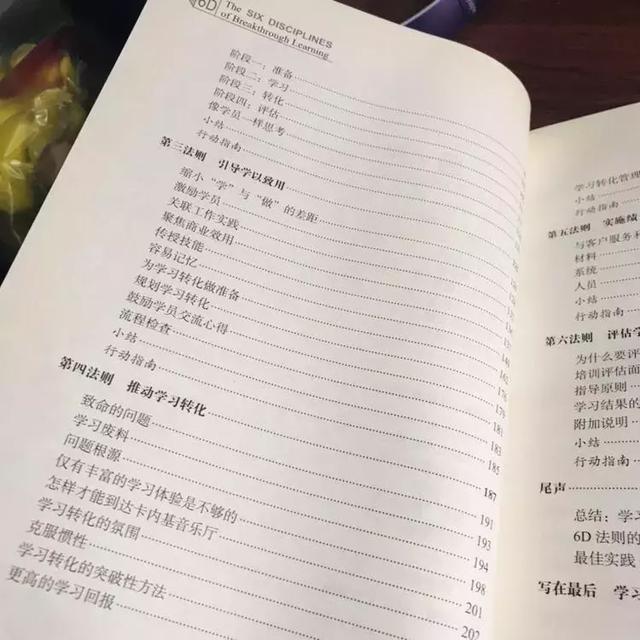 6D The SIX DISCIPLINES
of Breakthrough Learning
阶段一：准备
阶段二：学习
阶段三：转化
阶段四：评估
像学员一样思考
小结
行动指南
第三法则 引导学以致用
缩小“学”与“做”的差距
激励学员
关联工作实践
聚焦商业效用
传授技能
容易记忆
为学习转化做准备
规划学习转化
鼓励学员交流心得
流程检查 181
小结 183
行动指南 185
第四法则 推动学习转化 187
致命的问题 191
学习废料 193
问题根源 194
仅有丰富的学习体验是不够的 198
怎样才能到达卡内基音乐厅 201
学习转化的氛围 202
克服惯性
学习转化的突破性方法
更高的学习回报
学习转化管理
小结
行动指南
第五法则 实施绩
与客户服务和
材料
系统
人员
小结
行动指南
第六法则 评估学
为什么要评
培训评估面
指导原则
学习结果的
附加说明
小结
行动指南
尾声
总结：学习
6D 法则的
最佳实践
写在最后 学习